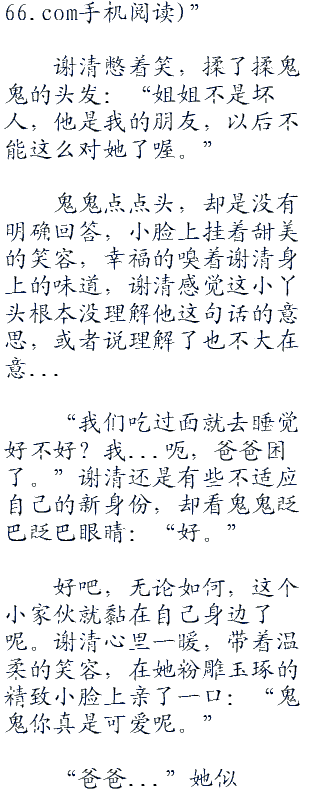 66.com手机阅读)”
谢清憋着笑，揉了揉鬼
鬼的头发：“姐姐不是坏
人，他是我的朋友，以后不
能这么对她了喔。”
鬼鬼点点头，却是没有
明确回答，小脸上挂着甜美
的笑容，幸福的嗅着谢清身
上的味道，谢清感觉这小丫
头根本没理解他这句话的意
思，或者说理解了也不大在
意...
“我们吃过面就去睡觉
好不好？我...呃，爸爸困
了。”谢清还是有些不适应
自己的新身份，却看鬼鬼眨
巴眨巴眼睛：“好。”
好吧，无论如何，这个
小家伙就黏在自己身边了
呢。谢清心里一暖，带着温
柔的笑容，在她粉雕玉琢的
精致小脸上亲了一口：“鬼
鬼你真是可爱呢。”
“爸爸...”她似